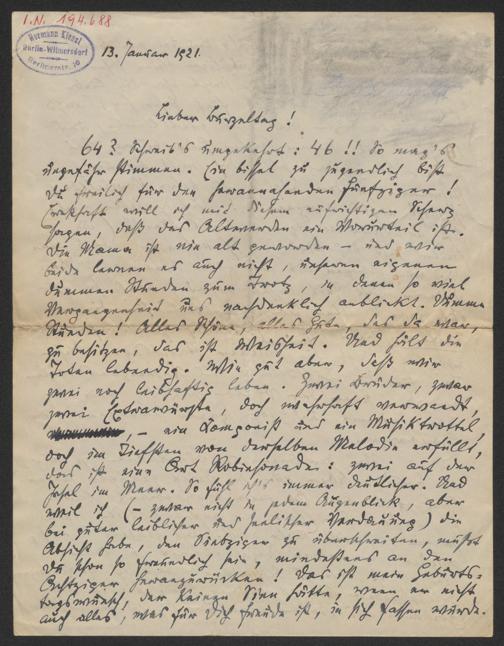 I.N. 194.688
Hermann Kienzl
Berlin-Wilmersdorf
13. Januar 1921.
Lieber Burzeltag!
64? Schreib's umgekehrt: 46!! So mag's
ungefähr stimmen. Ein bissel zu jugendlich bist
Du freilich für den herannahenden Fünfziger!
Ernsthaft will ich mit diesem aufrichtigen Scherz
sagen, daß das Altwerden ein Vorurteil ist.
Die Mama ist nie alt geworden – und wir
beide lernen es auch nicht, unseren eigenen
dummen Stunden zum Trotz, in denen so viel
Vergangenheit uns nachdenklich anblickt. Dumme
Stunden! Alles Schöne, alles Gute, das da war,
zu besitzen, das ist Weisheit. Und hält die
Toten lebendig. Wie gut aber, daß wir
zwei noch leibhaftig leben. Zwei Brüder, zwar
zwei Extrawürste, doch wahrhaft verwandt,
– ein Komponist und ein Musiktrottel
doch im Tiefsten von derselben Melodie erfüllt,
das ist eine Art Robinsonade: zwei auf der
Insel im Meer. So fühl ich's immer deutlicher. Und
weil ich (– zwar nicht in jedem Augenblick, aber
bei guter leiblicher und seelischer Verdauung) die
Absicht habe, den Siebziger zu überschreiten, mußt
Du schon so freundlich sein, mindestens an den
Achtziger heranzurücken! Das ist mein Geburts-
tagswunsch, der keinen Sinn hätte, wenn er nicht
auch alles, was für Dich Freude ist, in sich fassen würde.